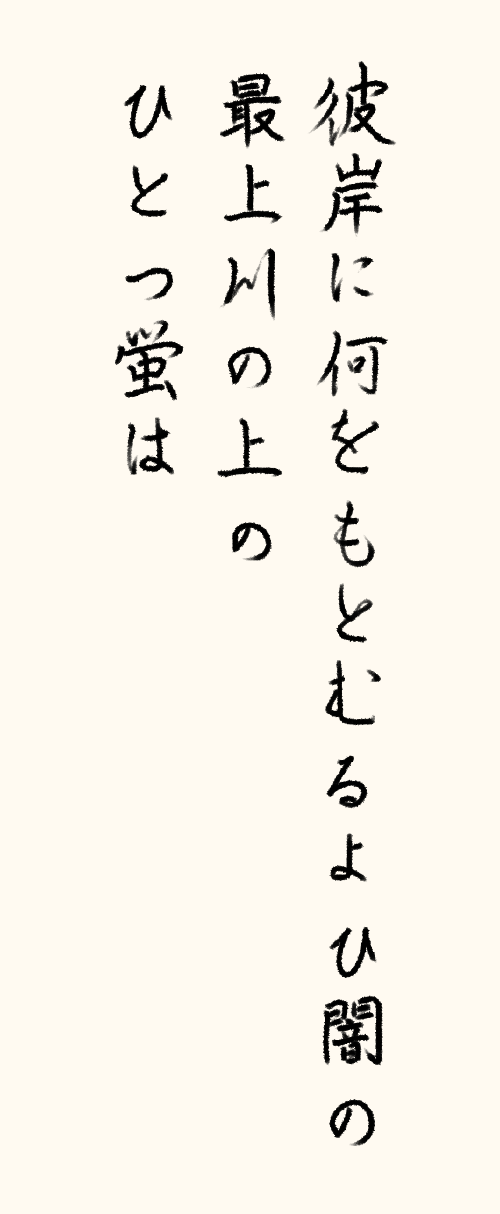 彼岸に何をもとむるよひ闇の
最上川の上の
ひとつ螢は